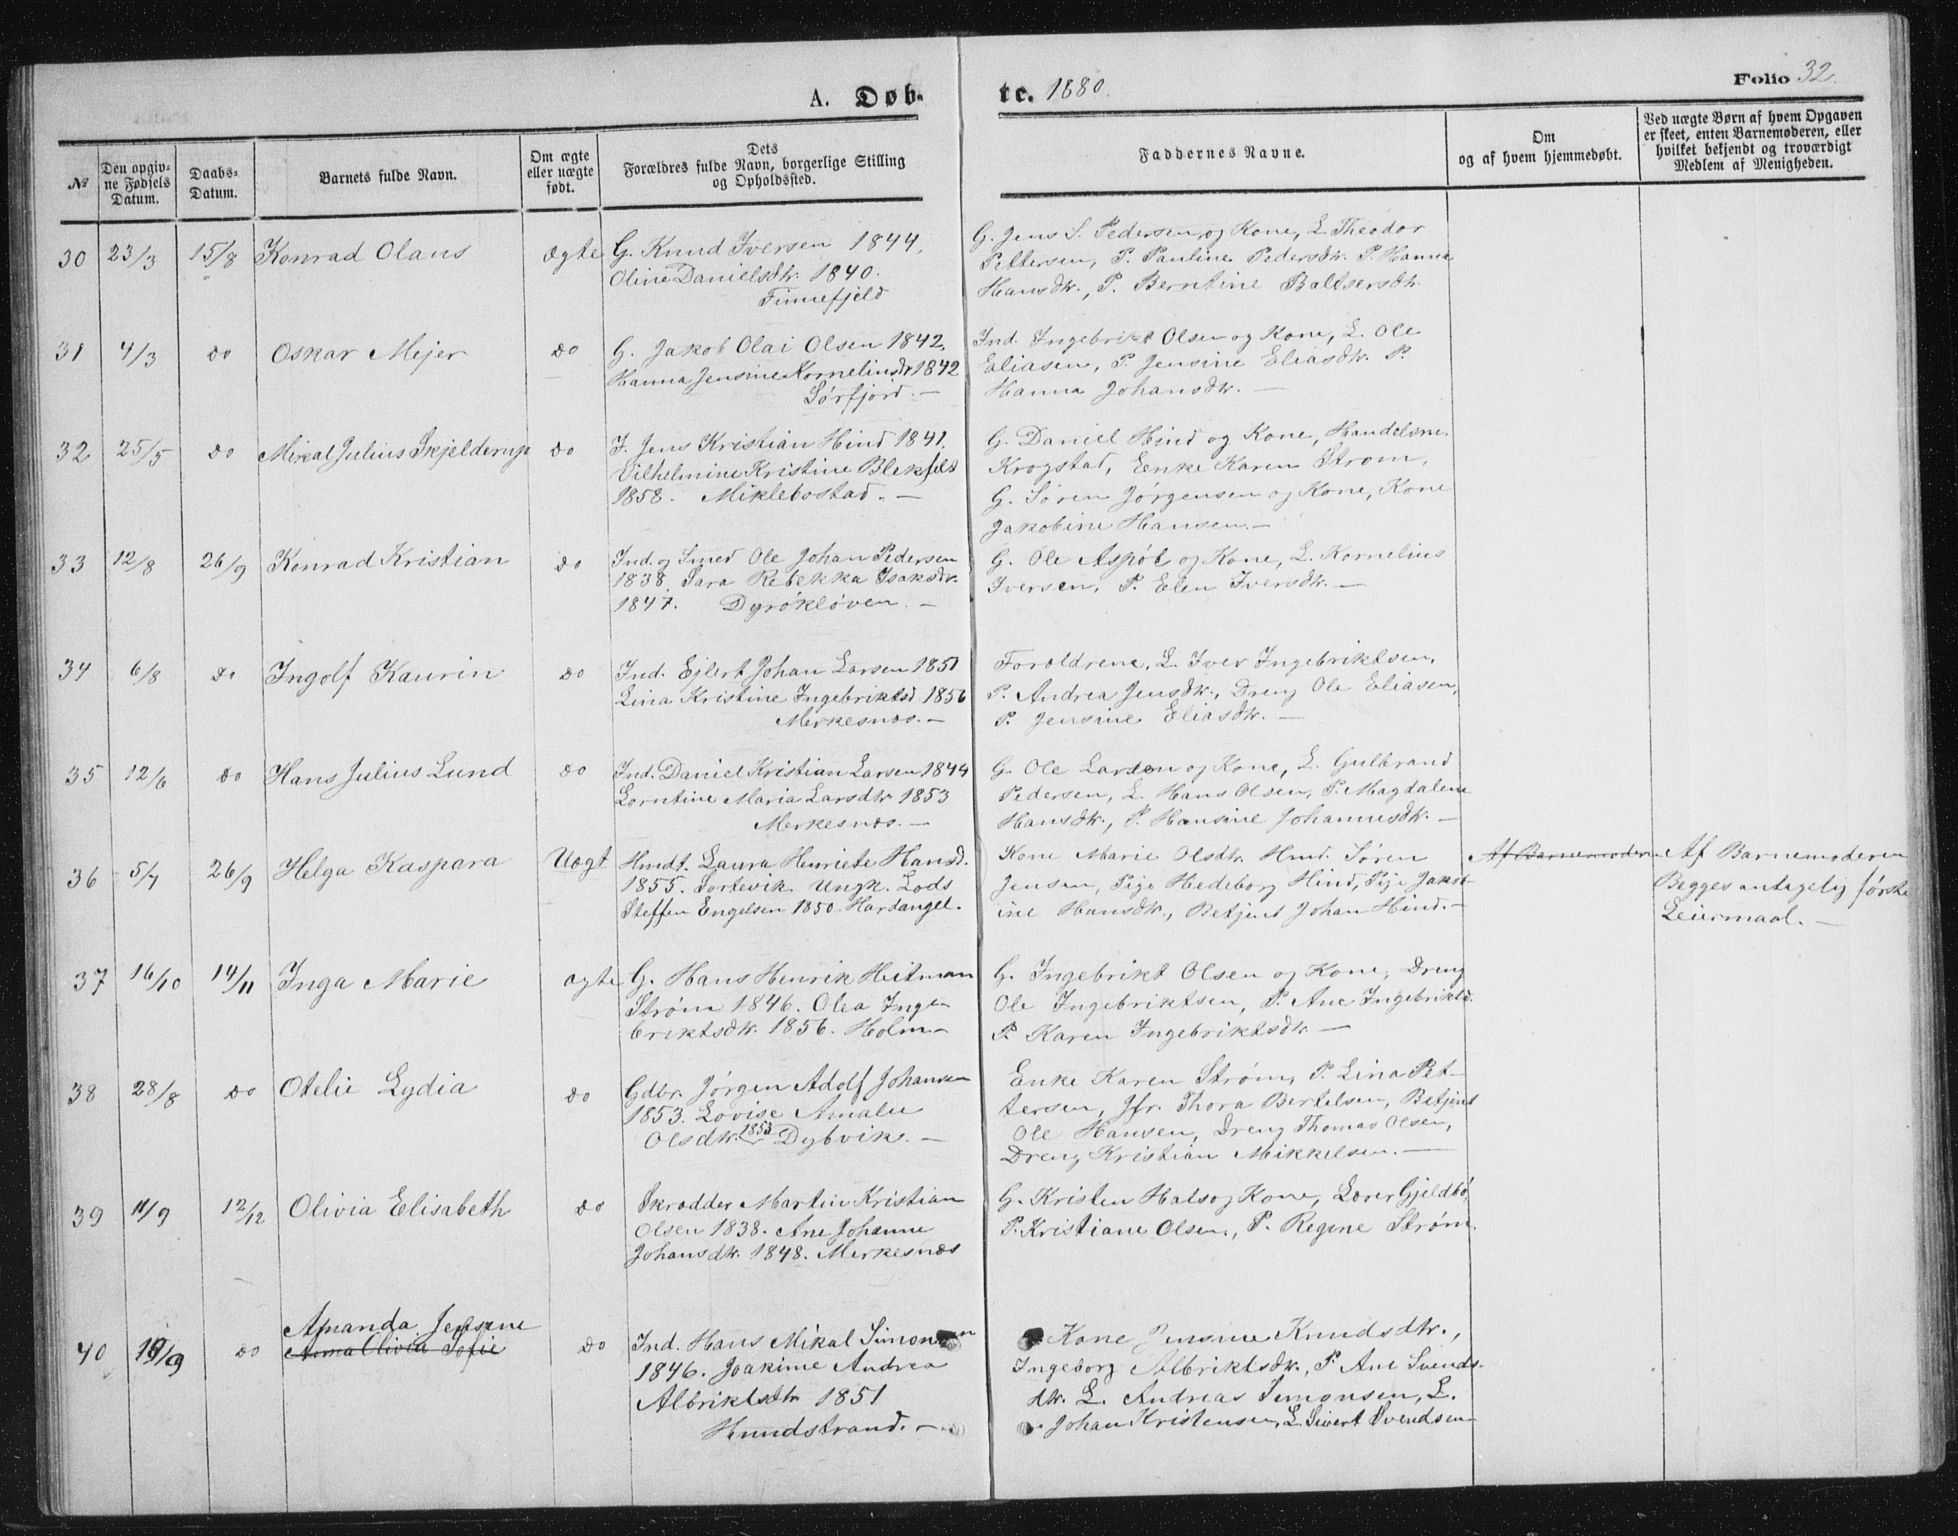 A. Døb- tc. 1880. Folio 32.
№
Den opgiv-
ne Fødsels
Datum.
Daabs-
Datum.
Barnets fulde Navn.
Om ægte
eller uægte
født.
Dets
Forældres fulde Navn, borgerlige Stilling
og Opholdssted.
Faddernes Navne.
Om
og af hvem hjemmedøbt.
Ved uægte Børn af hvem Opgaven
er skeet, enten Barnemoderen, eller
hvilket bekjendt og troværdigt
Medlem af Menigheden.
30 23/3 15/8 Konrad Olaus ægte
G. Knud Iversen 1844.
Oline Danielsdtr. 1840.
Finnefjeld
G. Jens S. Pedersen og Kone, L. Theodor
Pettersen, P. Pauline Pedersdtr. P. Hanna
Hansdtr., P. Berntine Baltsersdtr.
31 4/3 do Oskar Mejer do
G. Jakob Olai Olsen 1842.
Hanna Jensine Kornelinsdr 1842
Sørfjord. —
Ind. Ingebrikt Olsen og Kone, L. Ole
Eliasen, P. Jensine Eliasdtr. P.
Hanna Johansdtr. —
32 25/5 do Mikal Julius Skjelderup do
F. Jens Kristian Hind 1841.
Vilhelmine Kristine Blekfelt
1858. Miklebostad. —
G. Daniel Hind og Kone, Handelsm.
Krogstad, Enke Karen Strøm,
G. Søren Jørgensen og Kone, Kone
Jakobine Hansen. —
33 12/8 26/9 Konrad Kristian do
Ind. og Smed Ole Johan Pedersen
1838. Sara Rebekka Isaksdtr.
1847. Dyrøkløven. —
G. Ole Aspøt og Kone, L. Kornelius
Iversen, P. Elen Iversdtr. —
34 6/8 do Ingolf Kaurin do
Ind. Ejlert Johan Larsen 1851
Lina Kristine Ingebriktsd 1856
Merkesnæs. —
Forældrene, L. Iver Ingebriktsen,
P. Andrea Jensdtr., Dreng Ole Eliasen,
P. Jensine Eliasdtr. —
35 12/6 do Hans Julius Lund do
Ind. Daniel Kristian Larsen 1844
Lorntine Maria Larsdtr 1853
Merkesnæs. —
G. Ole Larsen og Kone, L. Gulbrand
Pedersen, L. Hans Olsen, P. Magdalena
Hansdtr., P. Hansine Johannesdtr. —
36 5/7 26/9 Helga Kaspara Uægt
Hmdt. Laura Henriete Hansd.
1855. Sortevik. Ungk. Lods
Steffen Engelsen 1850. Hardangel.
Kone Marie Olsdtr. Hmd. Søren
Jensen, Pige Hedeborg Hind, Pige Jakob-
ine Hansdtr., Betjent Johan Hind. —
Af Barnemoderen
Af Barnemoderen
Begges antagelig første
Leiermaal. —
37 16/10 14/11 Inga Marie ægte
G. Hans Henrik Heitman
Strøm 1846. Olea Inge-
briktsdtr. 1856. Holm —
G. Ingebrikt Olsen og Kone, Dreng
Ole Ingebriktsen, P. Ane Ingebriktsd.
P. Karen Ingebriktsdtr. —
38 28/8 do Otelie Lydia do
Gdbr. Jørgen Adolf Johansen
1853. Lovise Amalie
Olsdtr. 1853 Dybvik. —
Enke Karen Strøm, P. Lina Pet-
tersen, Jfr. Thora Bertelsen, Betjent
Ole Hansen, Dreng Thomas Olsen,
Dreng Kristian Mikkelsen. —
39 11/9 12/12 Olivia Elisabeth do
Skrædder Martin Kristian
Olsen 1838. Ane Johanne
Johansdtr. 1848. Merkesnæs
G. Kristen Hals og Kone, Lærer Gjeldbø,
P. Kristiane Olsen, P. Regine Strøm.
Amanda Jensine
40 19/9 do Anna Olivia Sofie do
Ind. Hans Mikal Simonsen
1846. Joakime Andrea
Albriktsdtr 1851
Hundstrand. —
Kone Jensine Knudsdtr.,
Ingeborg Albriktsdtr., P. Ane Svends-
dtr. L. Andreas Simonsen, L.
Johan Kristensen, L. Sivert Svendsen